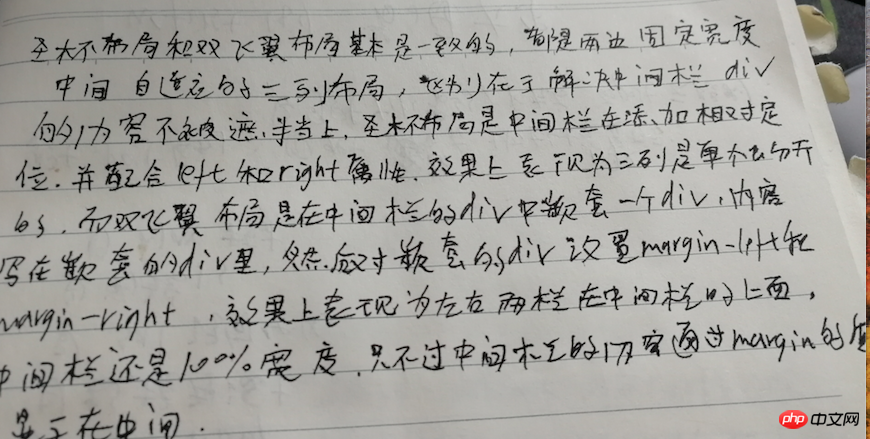 圣杯布局和双飞翼布局基本是一致的,都是两边固定宽度
中间自适应的三列布局,区别在于解决中间栏div
的内容不被遮挡上,圣杯布局是中间栏在添加相对定
位,并配合left和right属性,效果上表现为三列是单个分开
的,而双飞翼布局是在中间栏的div中嵌套一个div,内容
写在嵌套的div里,然后对嵌套的div设置margin-left和
margin-right,效果上表现为左右两栏在中间栏的上面,
中间栏还是100%宽度,只不过中间栏的内容通过margin的值
显示在中间.
php中文网